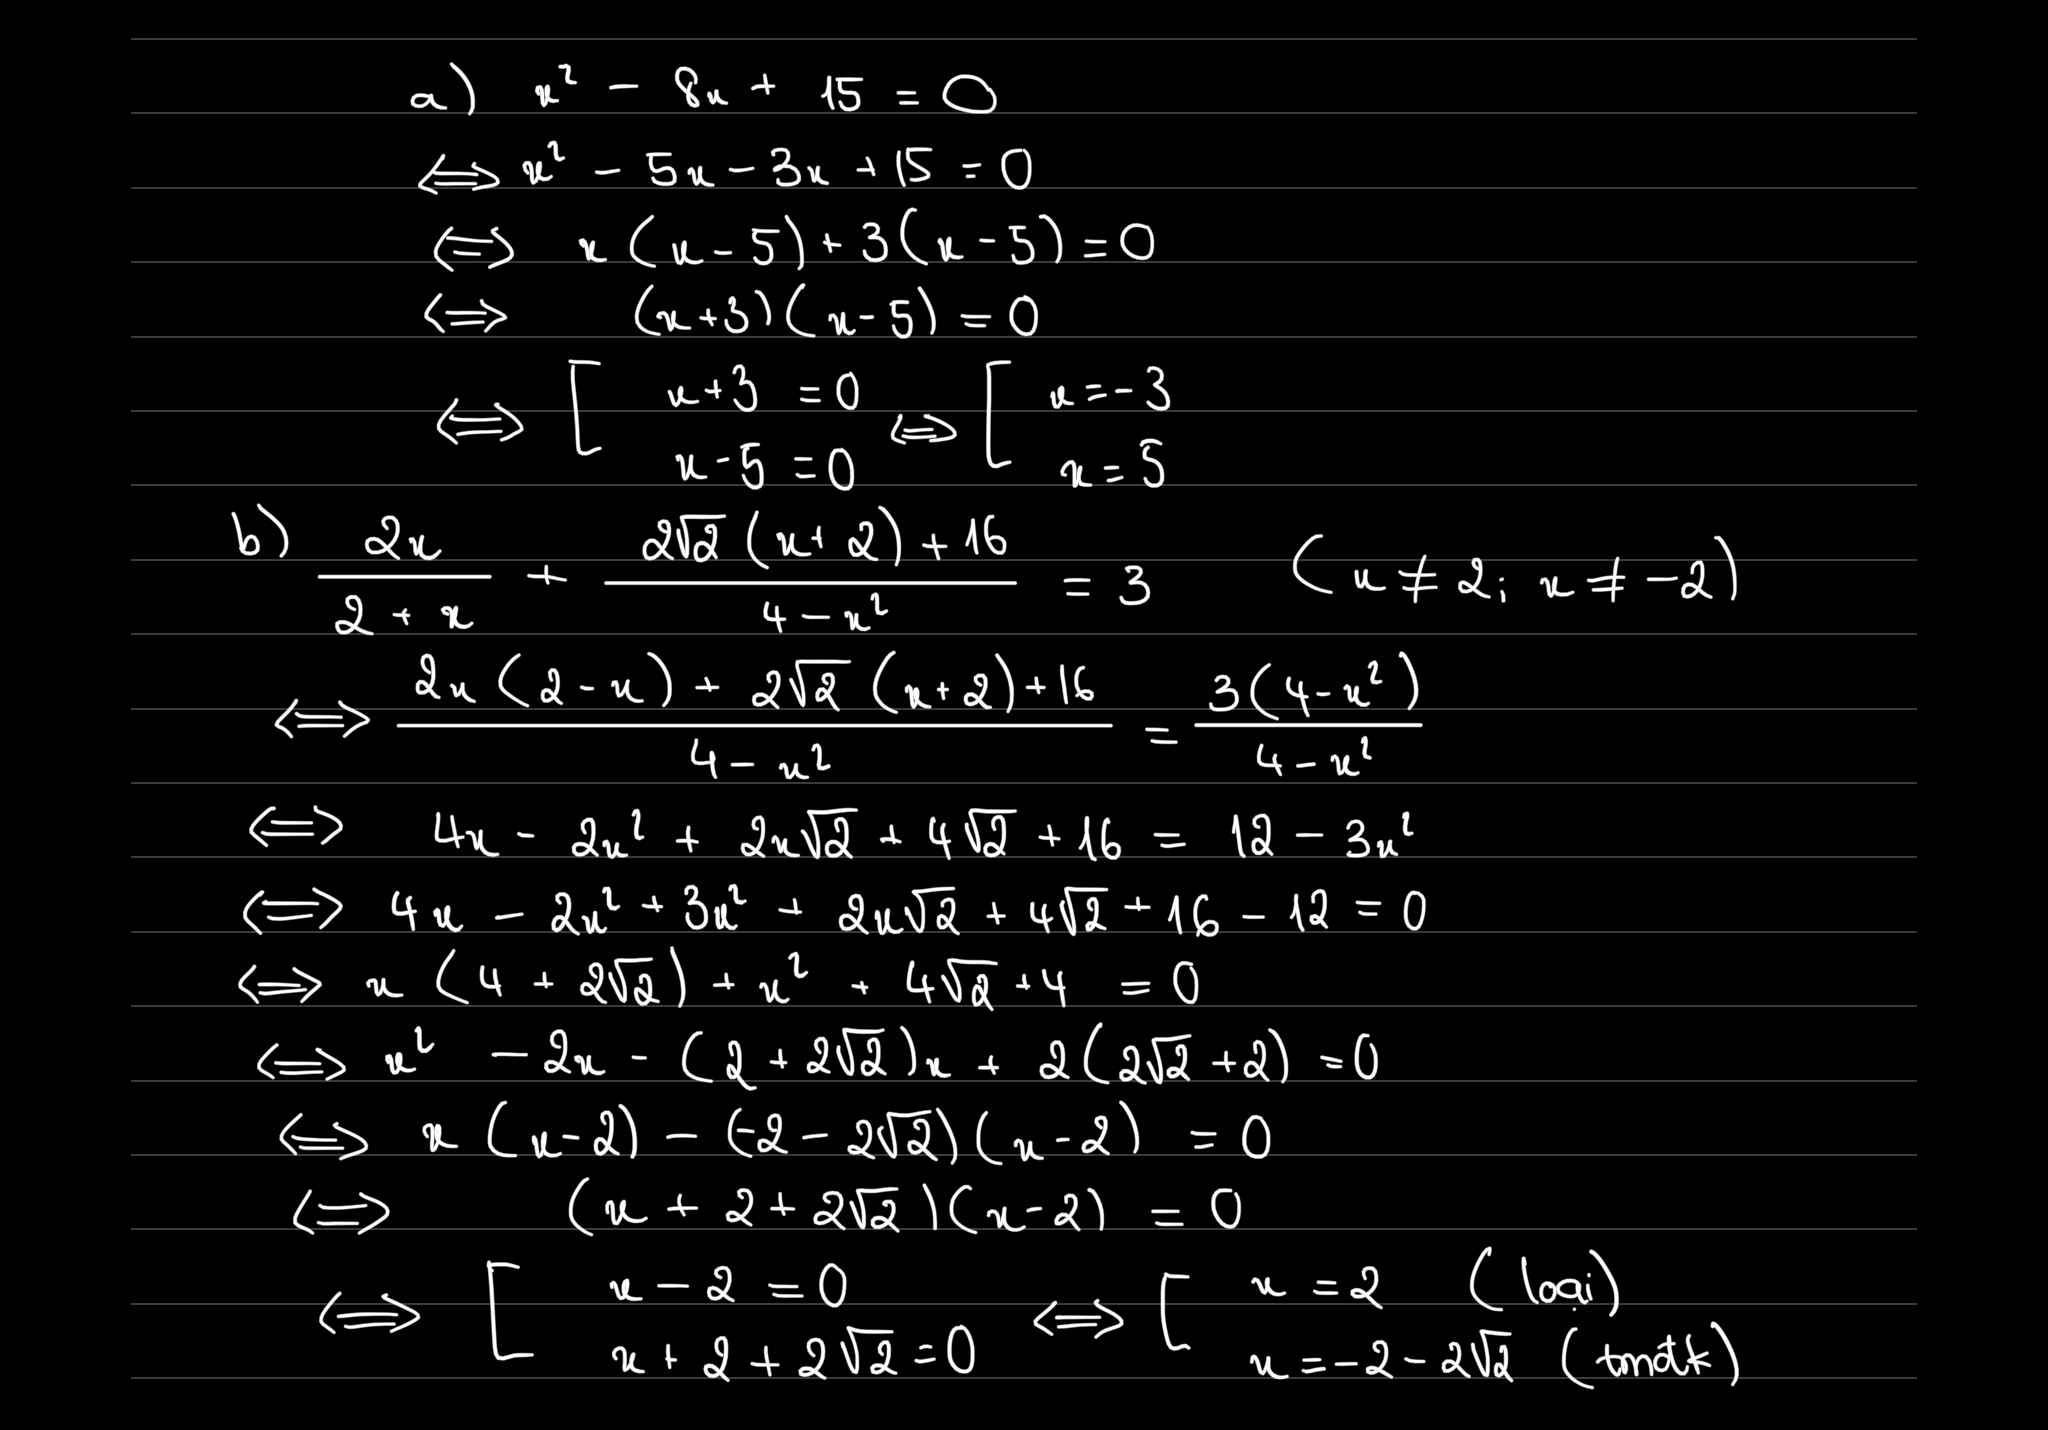 a) x² - 8x + 15 = 0
⟺ x² - 5x - 3x + 15 = 0
⟺ x (x - 5) + 3 (x - 5) = 0
⟺ (x + 3) (x - 5) = 0
⟺ [ x + 3 = 0 ⟺ [ x = -3
x - 5 = 0 x = 5
b) 2x / (2 + x) + (2√2 (x + 2) + 16) / (4 - x²) = 3 (x ≠ 2; x ≠ -2)
⟺ (2x (2 - x) + 2√2 (x + 2) + 16) / (4 - x²) = 3 (4 - x²) / (4 - x²)
⟺ 4x - 2x² + 2x√2 + 4√2 + 16 = 12 - 3x²
⟺ 4x - 2x² + 3x² + 2x√2 + 4√2 + 16 - 12 = 0
⟺ x (4 + 2√2) + x² + 4√2 + 4 = 0
⟺ x² - 2x - (2 + 2√2)x + 2 (2√2 + 2) = 0
⟺ x (x - 2) - (-2 - 2√2) (x - 2) = 0
⟺ (x + 2 + 2√2) (x - 2) = 0
⟺ [ x - 2 = 0 ⟺ [ x = 2 (loại)
x + 2 + 2√2 = 0 x = -2 - 2√2 (tmđk)